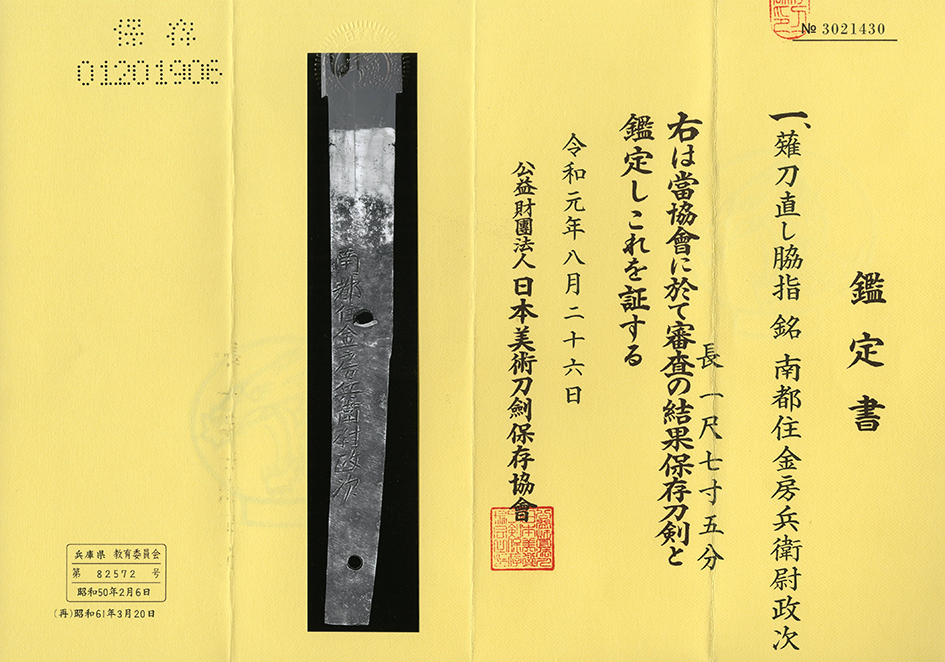 № 3021430
鑑定書
一、薙刀直し脇指 銘 南都住金房兵衛尉政次
長 一尺七寸五分
右は當協會に於て審査の結果保存刀剣と
鑑定しこれを証する
令和元年八月二十六日
公益財團法人 日本美術刀劍保存協會
南都住金房兵衛尉政次
保存
01201906
兵庫県 教育委員会
第 82572 号
昭和50年2月6日
(再)昭和61年3月20日